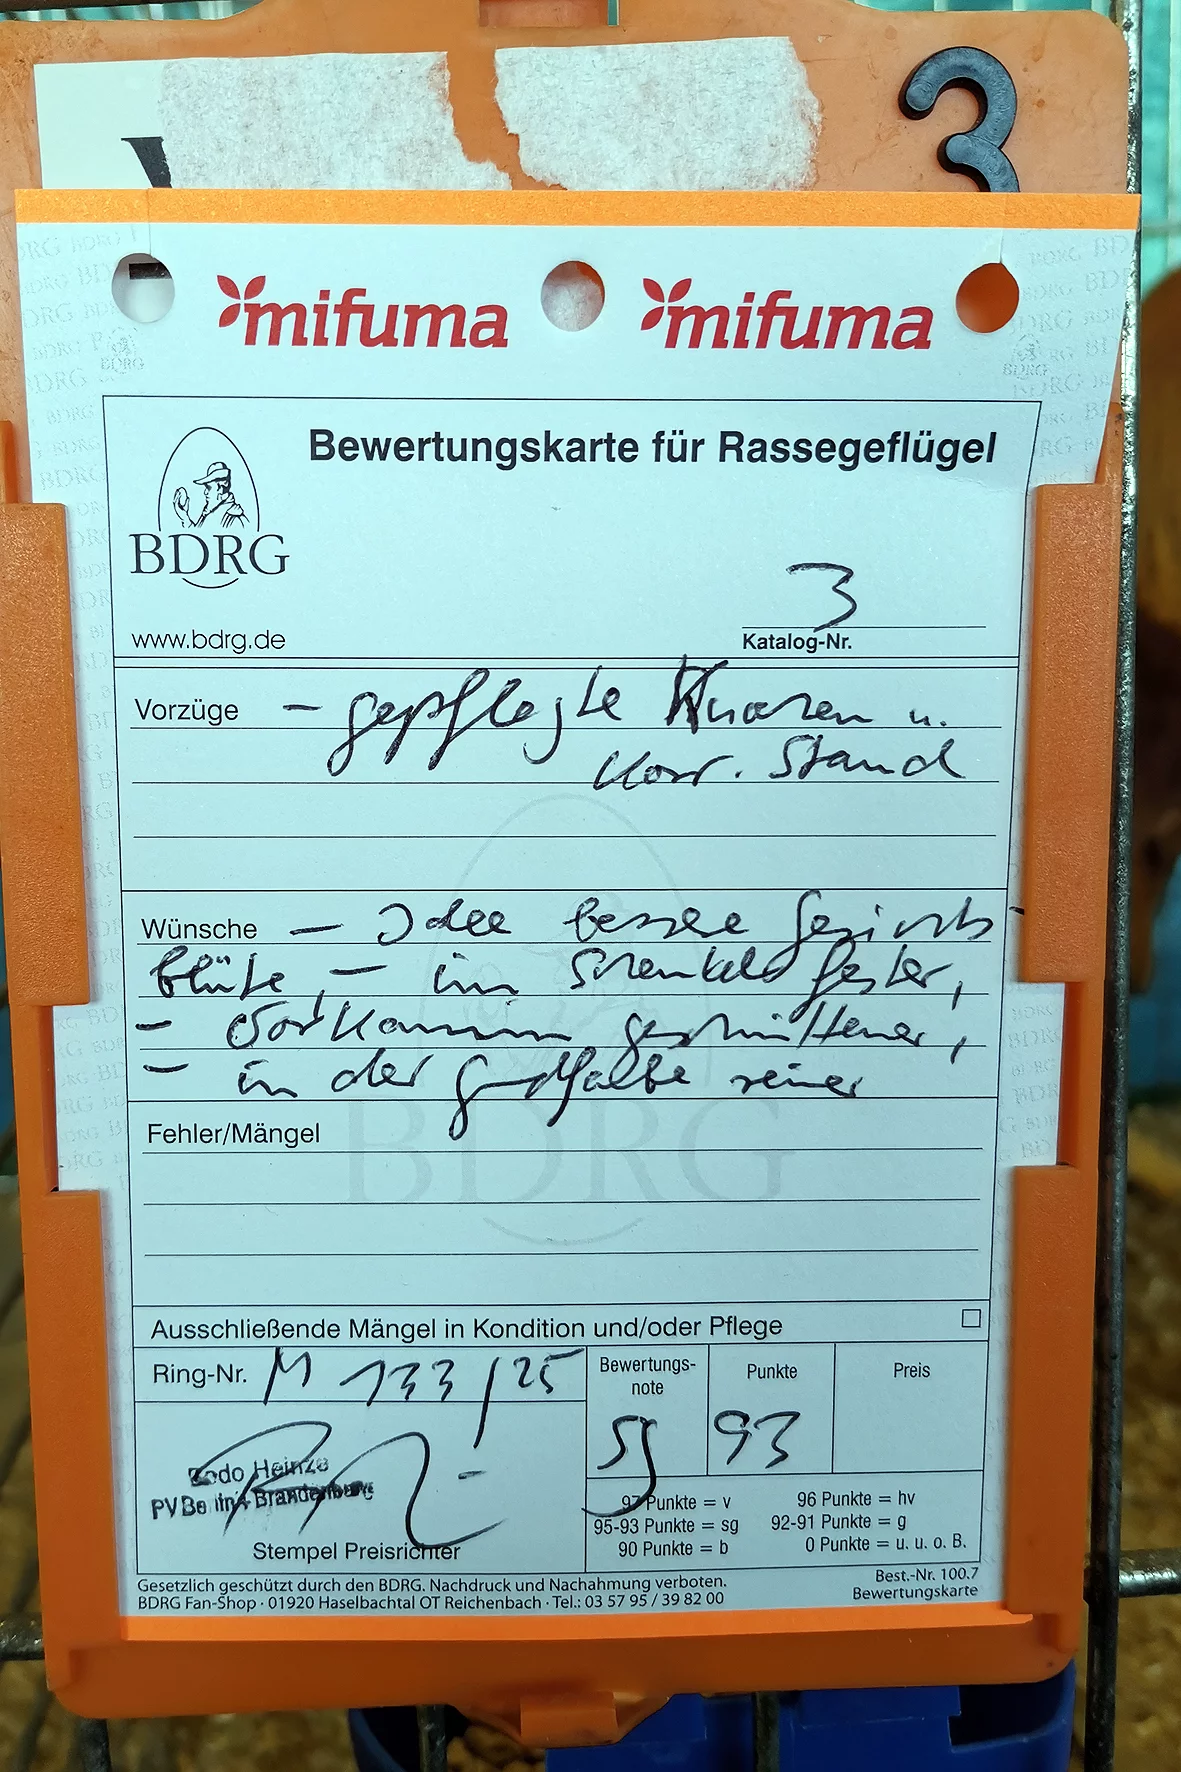 3
mifuma mifuma
Bewertungskarte für Rassegeflügel
BDRG
www.bdrg.de
3
Katalog-Nr.
Vorzüge – gepflegte
korr. Stand
Wünsche – Idee bessere Gesichts-
blüte, – im Schenkel fester,
– Vorkamm geschnittener,
– in der Grdfarbe reiner
Fehler/Mängel
BDRG
Ausschließende Mängel in Kondition und/oder Pflege
Ring-Nr. M 133/25
Bewertungs-
note
Punkte
Preis
sg
93
Bodo Heinze
PV Berlin-Brandenburg
Stempel Preisrichter
97 Punkte = v 96 Punkte = hv
95-93 Punkte = sg 92-91 Punkte = g
90 Punkte = b 0 Punkte = u. u. o. B.
Gesetzlich geschützt durch den BDRG. Nachdruck und Nachahmung verboten.
BDRG Fan-Shop · 01920 Haselbachtal OT Reichenbach · Tel.: 03 57 95 / 39 82 00
Best.-Nr. 100.7
Bewertungskarte